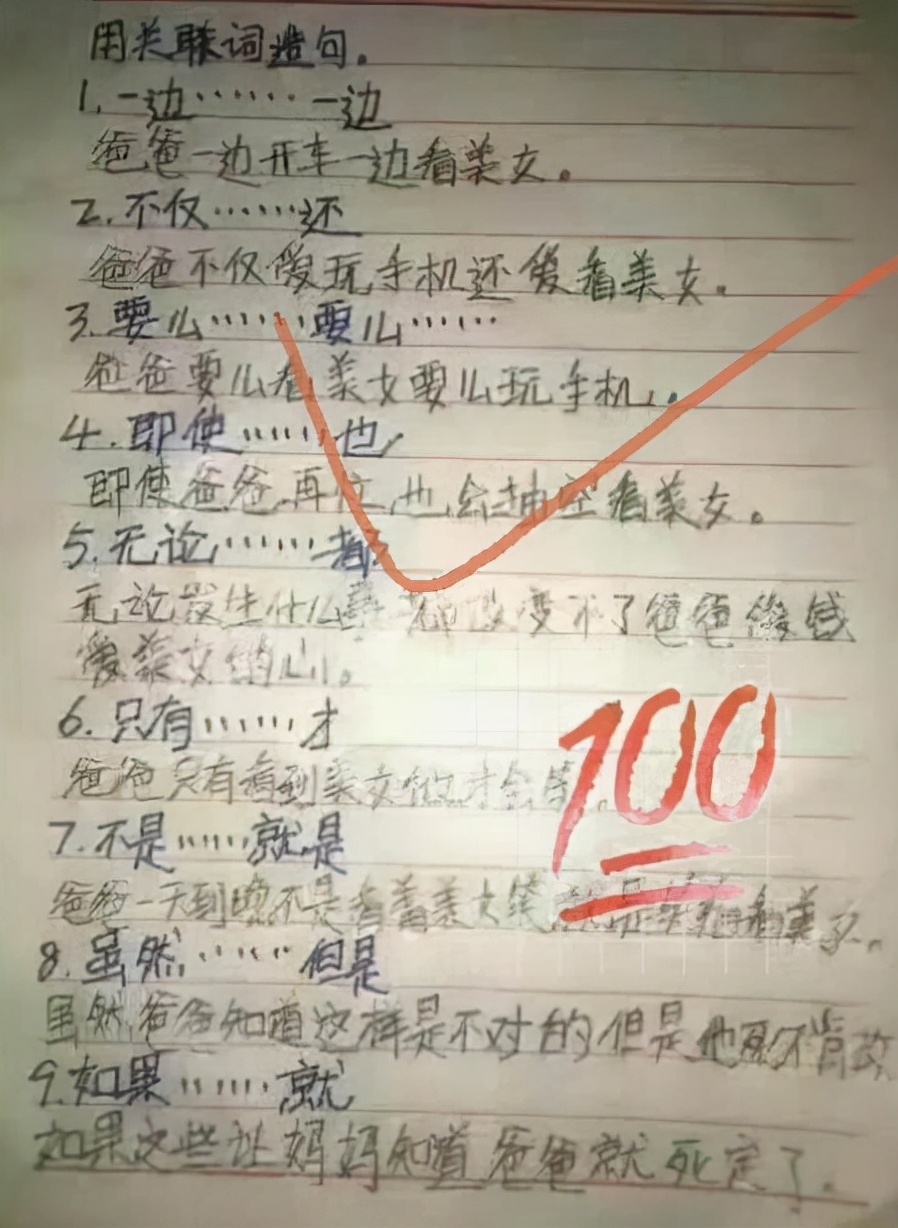 用关联词造句。
1.一边……一边
爸爸一边开车一边看美女。
2.不仅……还
爸爸不仅爱玩手机还爱看美女。
3.要么……要么……
爸爸要么看美女要么玩手机。
4.即使……也
即使爸爸再忙也会抽空看美女。
5.无论……都
无论发生什么事都改变不了爸爸爱钱
爱美女的心。
6.只有……才
爸爸只有看到美女他才会笑。
7.不是……就是
爸爸一天到晚不是看着美女笑就是笑着看美女。
8.虽然……但是
虽然爸爸知道这样是不对的但是他死不肯改
9.如果……就
如果这些让妈妈知道爸爸就死定了.
100